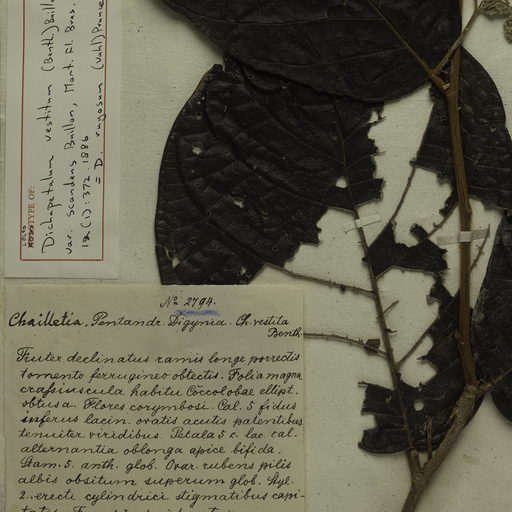 TYPE OF:
Dichapetalum vestitum (Benth.) Baill.
var. scandens Baillon, Mart. Fl. Bras.
12 (1): 372. 1886
= D. rugosum (Vahl) Prance
No 2794.
Chailletia, Pentandr. Digynia. Ch. vestita
Benth.
Frutex declinatus ramis longe porrectis
tomento ferrugineo obtectis. Folia magna
crassiuscula habitu Coccolobae ellipt.
obtusa. Flores corymbosi. Cal. 5 fidus
inferus lacin. ovatis acutis patentibus
tenuiter viridibus. Petala 5 c. lac. cal.
alternantia oblonga apice bifida.
Stam. 5. anth. glob. Ovar. rubens pilis
albis obsitum superum glob. Styl.
2. erecti cylindrici stigmatibus capi-